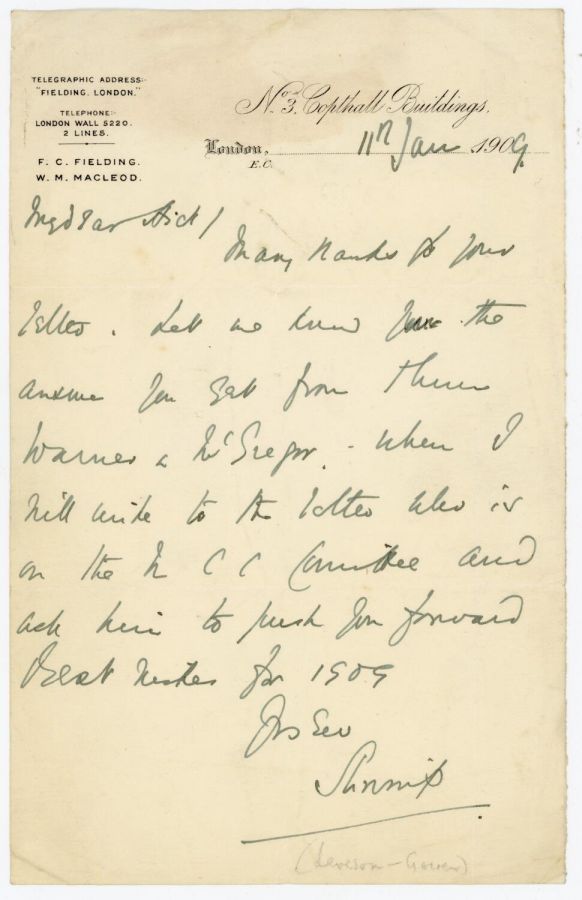 TELEGRAPHIC ADDRESS:-
"FIELDING. LONDON."
TELEPHONE:-
LONDON WALL 5220.
2 LINES.
F. C. FIELDING.
W. M. MACLEOD.
No. 3. Copthall Buildings.
London, 11th Jan 1909.
E.C.
My dear Dick /
Many thanks for your
letter. Let me know the
answer you get from
Warner & McGregor. - when I
will write to the latter who is
on the M C C Committee and
ask him to push you forward
Best wishes for 1909
Yrs Ever
Shrimp
(Leveson-Gower)